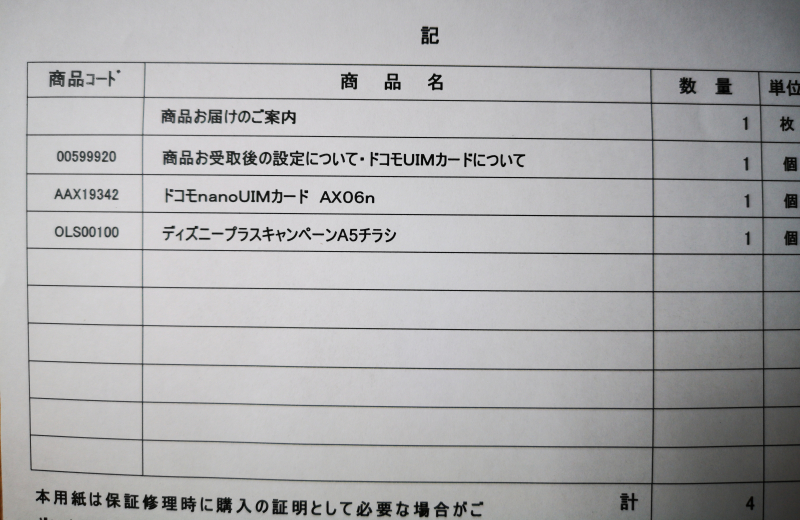 記
商品コード 商 品 名 数 量 単位
商品お届けのご案内 1 枚
00599920 商品お受取後の設定について・ドコモUIMカードについて 1 個
AAX19342 ドコモnanoUIMカード AX06n 1 個
OLS00100 ディズニープラスキャンペーンA5チラシ 1 個
本用紙は保証修理時に購入の証明として必要な場合がご 計 4